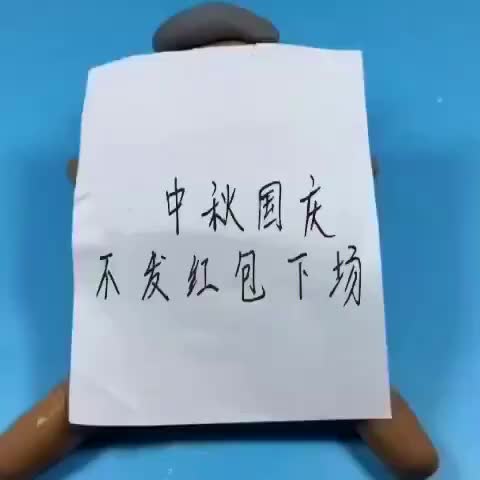 中秋国庆
不发红包下场